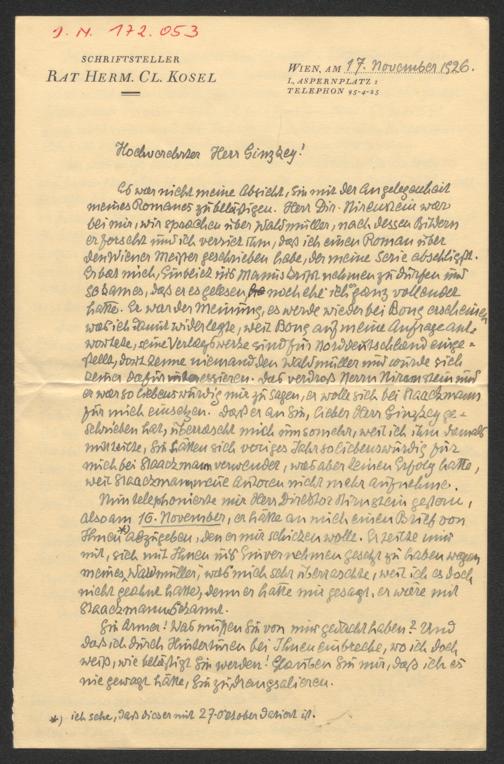 J. N. 172.053
SCHRIFTSTELLER
RAT HERM. CL. KOSEL
WIEN, AM 17. November 1926.
I., ASPERNPLATZ 1
TELEPHON 95-4-25
Hochverehrter Herr Ginzkey!
Es war nicht meine Absicht, Sie mit der Angelegenheit
meines Romanes zu belästigen. Herr Dir. Nirenstein war
bei mir, wir sprachen über Waldmüller, nach dessen Bildern
er forscht und ich verriet ihm, daß ich einen Roman über
den Wiener Meister geschrieben habe, der meine Serie abschließt.
Er bat mich, Einblick ins Manuskript nehmen zu dürfen und
so kam es, daß er es gelesen noch ehe ich's ganz vollendet
hatte. Er war der Meinung, es werde wieder bei Bong erscheinen
was ich damit widerlegte, weil Bong auf meine Anfrage ant-
wortete, seine Verlagswerke sind für Norddeutschland einge-
stellt, dort kenne niemand den Waldmüller und würde sich
keiner dafür interessieren. Das verdroß Herrn Nirenstein und
er war so liebenswürdig mir zu sagen, er wolle sich bei Staackmann
für mich einsetzen. Daß er an Sie, lieber Herr Ginzkey ge-
schrieben hat, überrascht mich umsomehr, weil ich ihm damals
mitteilte, Sie hätten sich voriges Jahr so liebenswürdig für
mich bei Staackmann verwendet, was aber keinen Erfolg hatte,
weil Staackmann neue Autoren nicht mehr aufnehme.
Nun telephonierte mir Herr Direktor Nirenstein gestern,
also am 16. November, er hätte an mich einen Brief von
Ihnen *) abzugeben, den er mir schicken wolle. Er teilte mir
mit, sich mit Ihnen ins Einvernehmen gesetzt zu haben wegen
meines Waldmüller, was mich sehr überraschte, weil ich es doch
nicht geahnt hatte, denn er hatte mir gesagt, er wäre mit
Staackmann bekannt.
Sie Armer! Was müssen Sie von mir gedacht haben? Und
daß ich durch Hintertüren bei Ihnen einbreche, wo ich doch
weiß, wie belästigt Sie werden! Glauben Sie mir, daß ich es
nie gewagt hätte, Sie zu drangsalieren.
*) ich sehe, daß dieser mit 27. Oktober datiert ist.